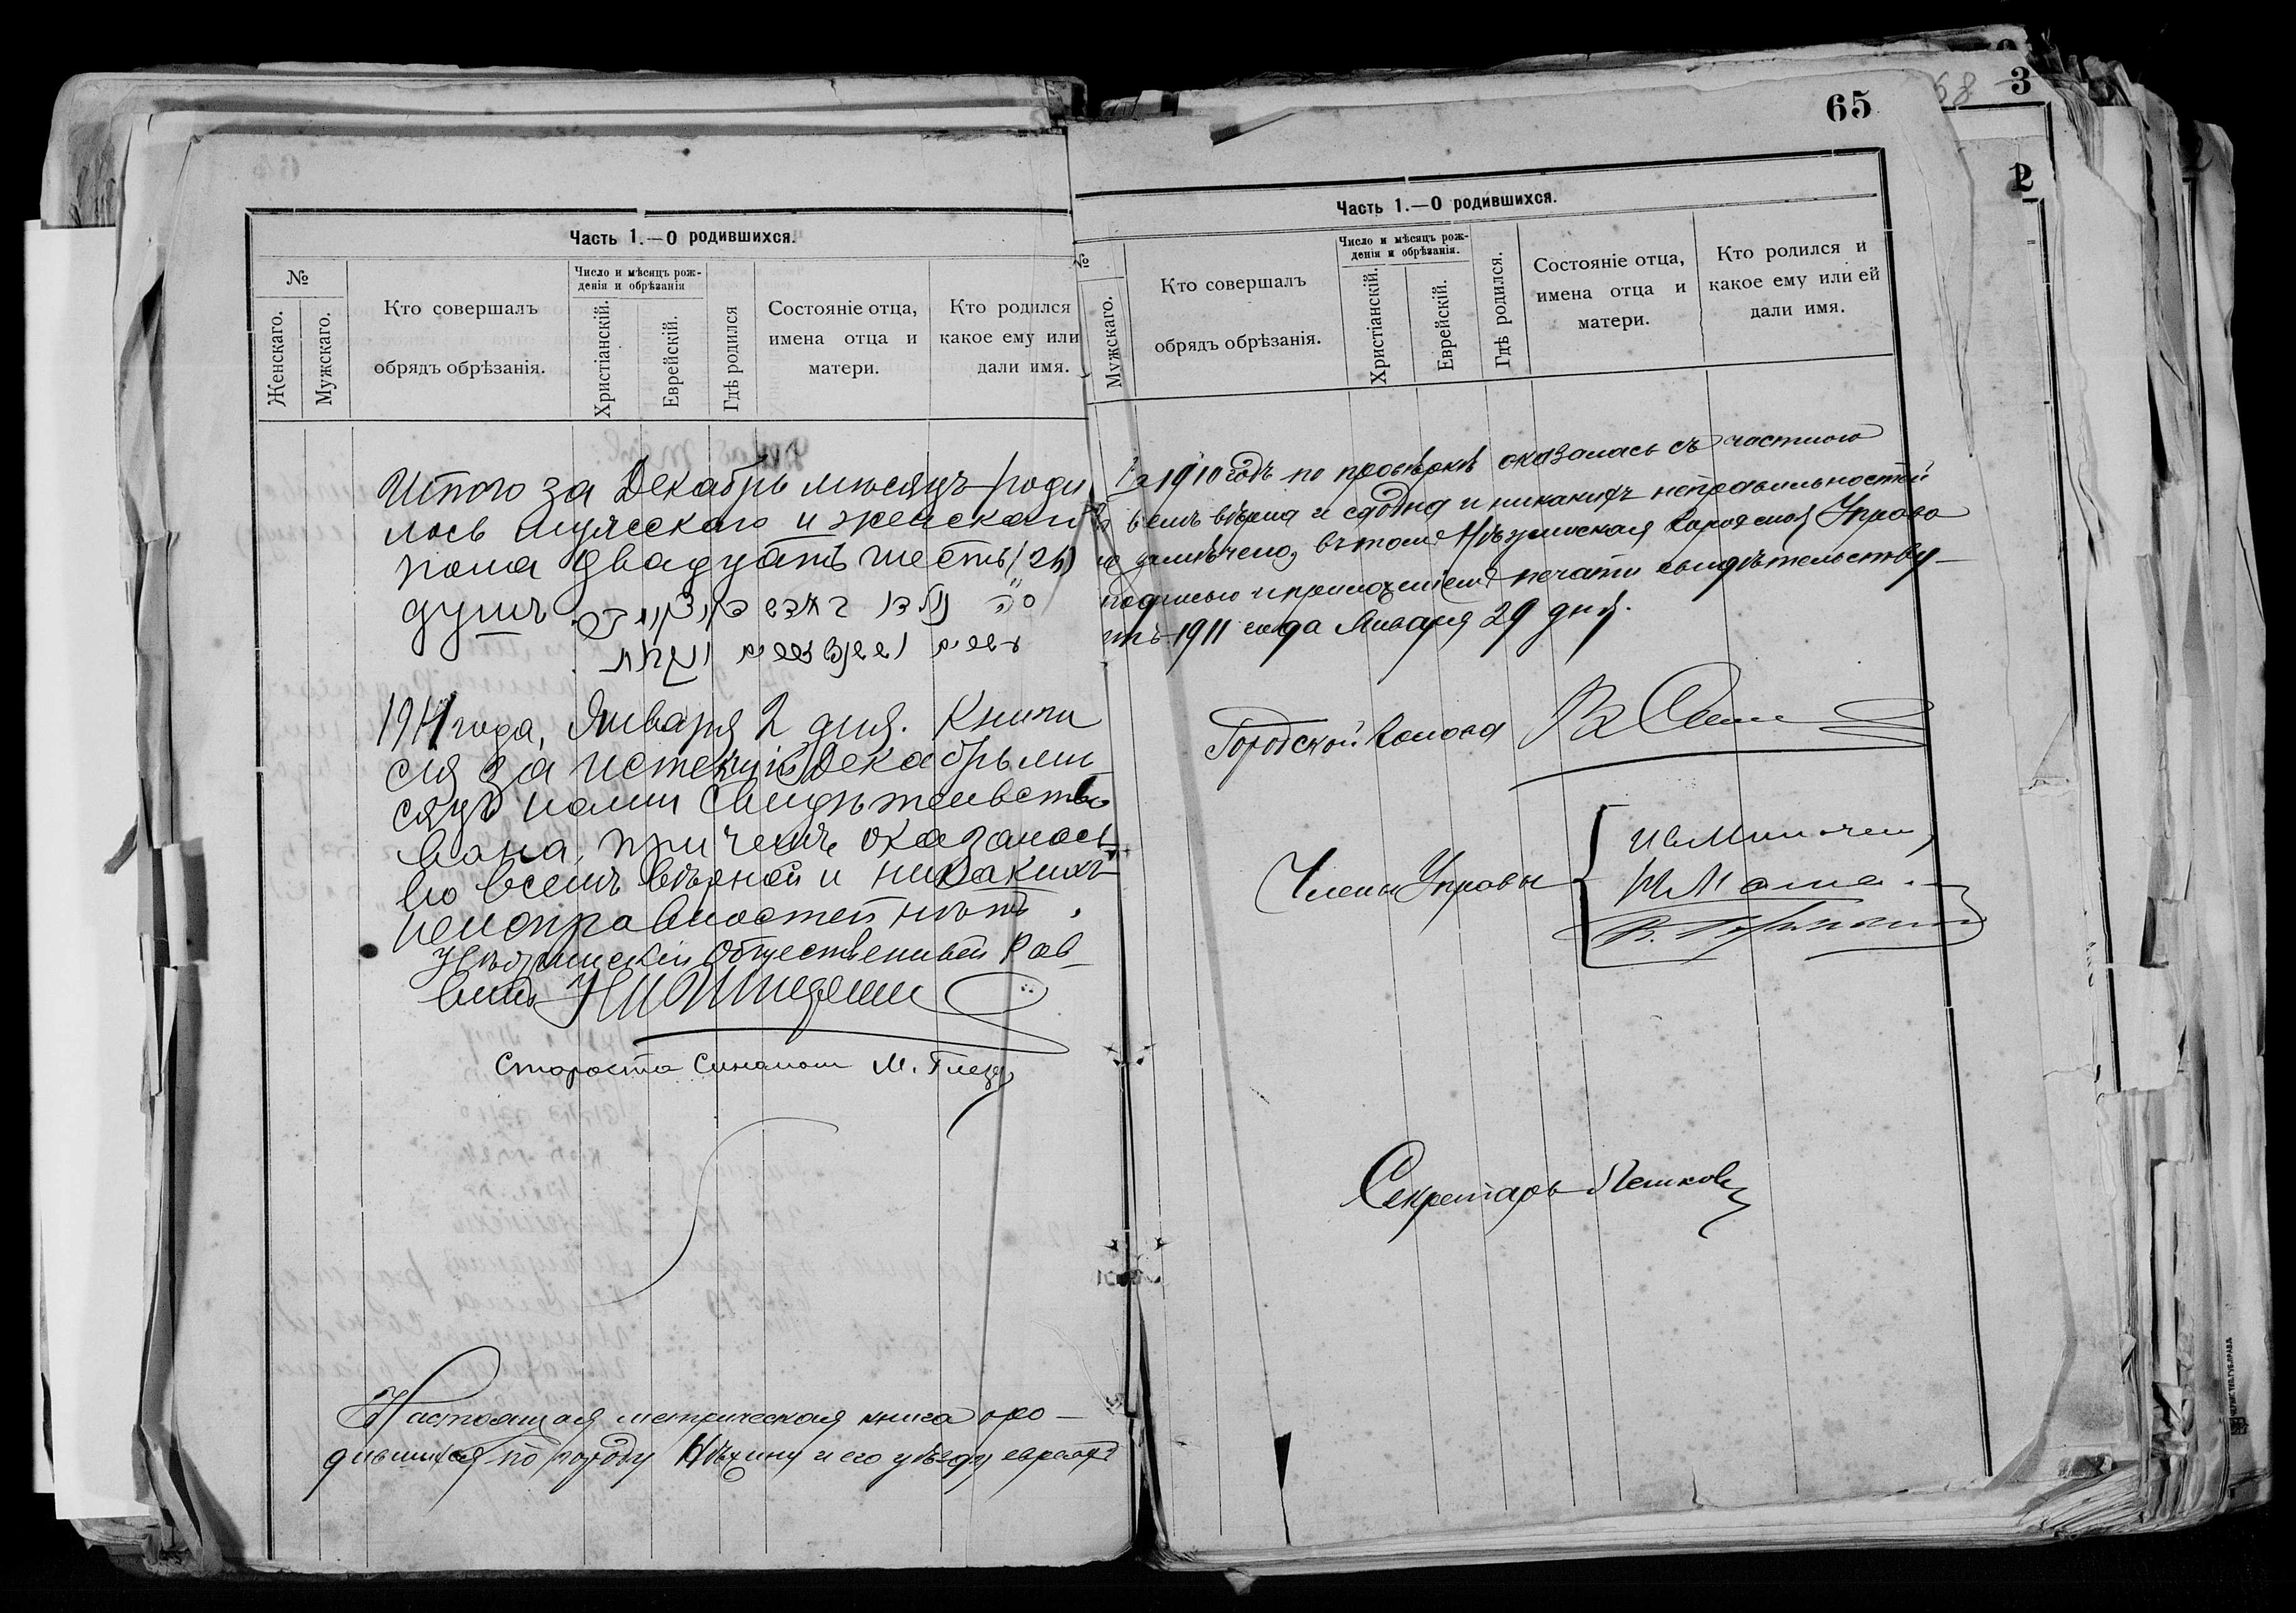 Часть 1.—О родившихся.
№
Женскаго.
Мужскаго.
Кто совершалъ
обрядъ обрѣзанія.
Число и мѣсяцъ рож-
денія и обрѣзанія
Христіанскій.
Еврейскій.
Гдѣ родился
Состояніе отца,
имена отца и
матери.
Кто родился
какое ему или
дали имя.
Итого за Декабрь мѣсяцъ роди
лось мужескаго и женскаго
пола двадцать шесть (26)
душъ
1911 года, Января 2 дня. Книга
сія за истекшій Декабрь мѣ
сяцъ нами свидѣтельство
вана, при чемъ оказалась
во всемъ вѣрной и никакихъ
неисправностей нѣтъ.
Нѣжинскій Общественный Рав
винъ
Староста Синагоги М.
Настоящая метрическая книга о ро-
дившихся по городу Нѣжину и его уѣзду евреахъ
65
68
3
2
Часть 1.—О родившихся.
№
Мужскаго.
Кто совершалъ
обрядъ обрѣзанія.
Число и мѣсяцъ рож-
денія и обрѣзанія.
Христіанскій.
Еврейскій.
Гдѣ родился.
Состояніе отца,
имена отца и
матери.
Кто родился и
какое ему или ей
дали имя.
за 1910 годъ по провѣркѣ оказалась съ частною
во всемъ вѣрна и сходна и никакихъ неправильностей
не замѣчено, въ томъ Нѣжинская Городская Управа
подписью и приложеніемъ печати свидѣтельству-
етъ 1911 года Января 29 дня.
Городской Голова
Члены Управы
Секретарь Пешковъ